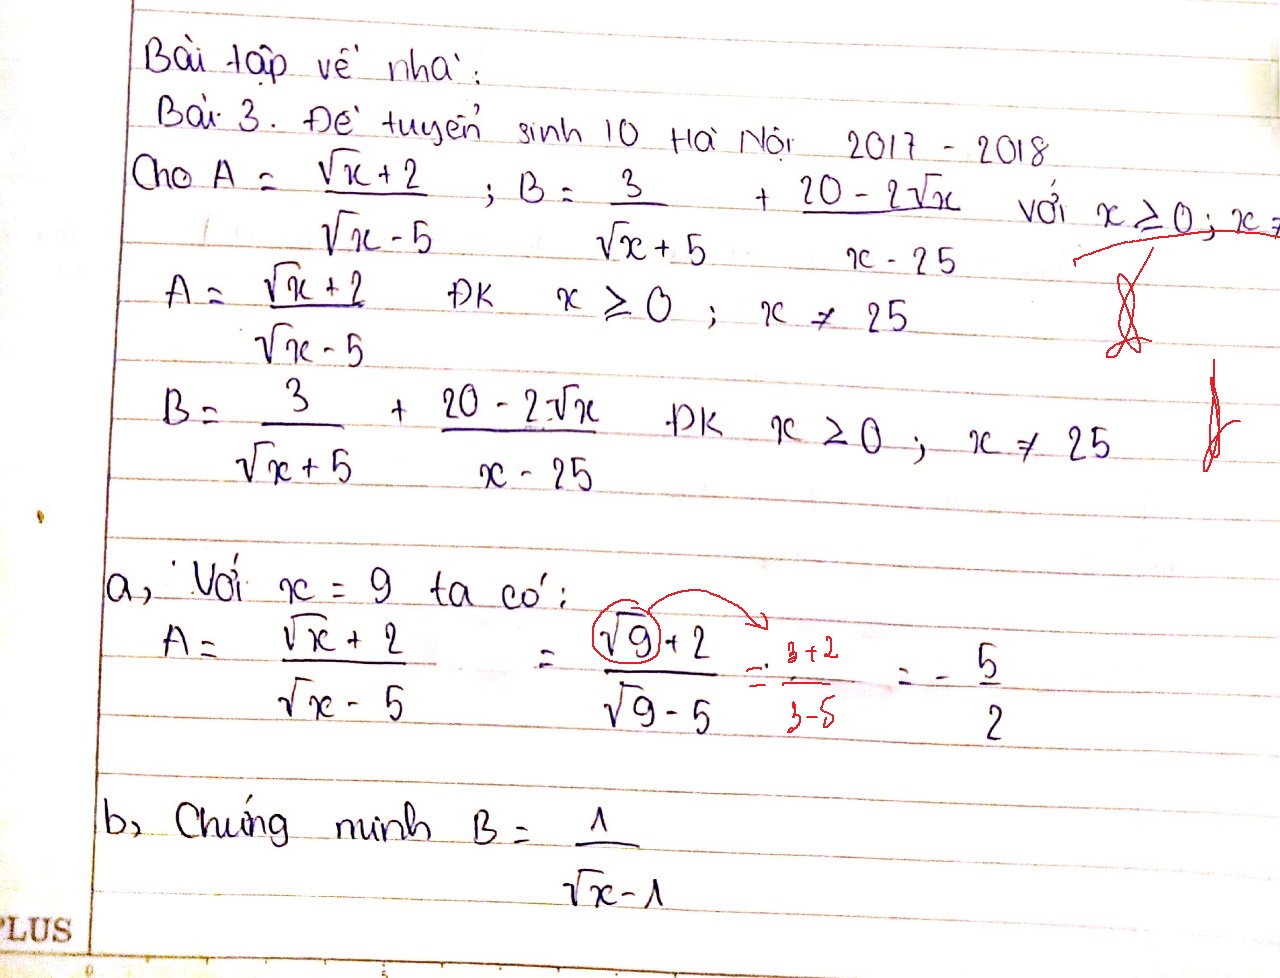 Bài tập về nhà:
Bài 3. Đề tuyển sinh 10 Hà Nội 2017 - 2018
Cho A = (√x + 2)/(√x - 5) ; B = 3/(√x + 5) + (20 - 2√x)/(x - 25) với x ≥ 0 ; x ≠
A = (√x + 2)/(√x - 5) ĐK x ≥ 0 ; x ≠ 25
B = 3/(√x + 5) + (20 - 2√x)/(x - 25) ĐK x ≥ 0 ; x ≠ 25
a, Với x = 9 ta có:
A = (√x + 2)/(√x - 5) = (√9 + 2)/(√9 - 5) = (3+2)/(3-5) = - 5/2
b, Chứng minh B = 1/(√x - 1)
PLUS
0 5